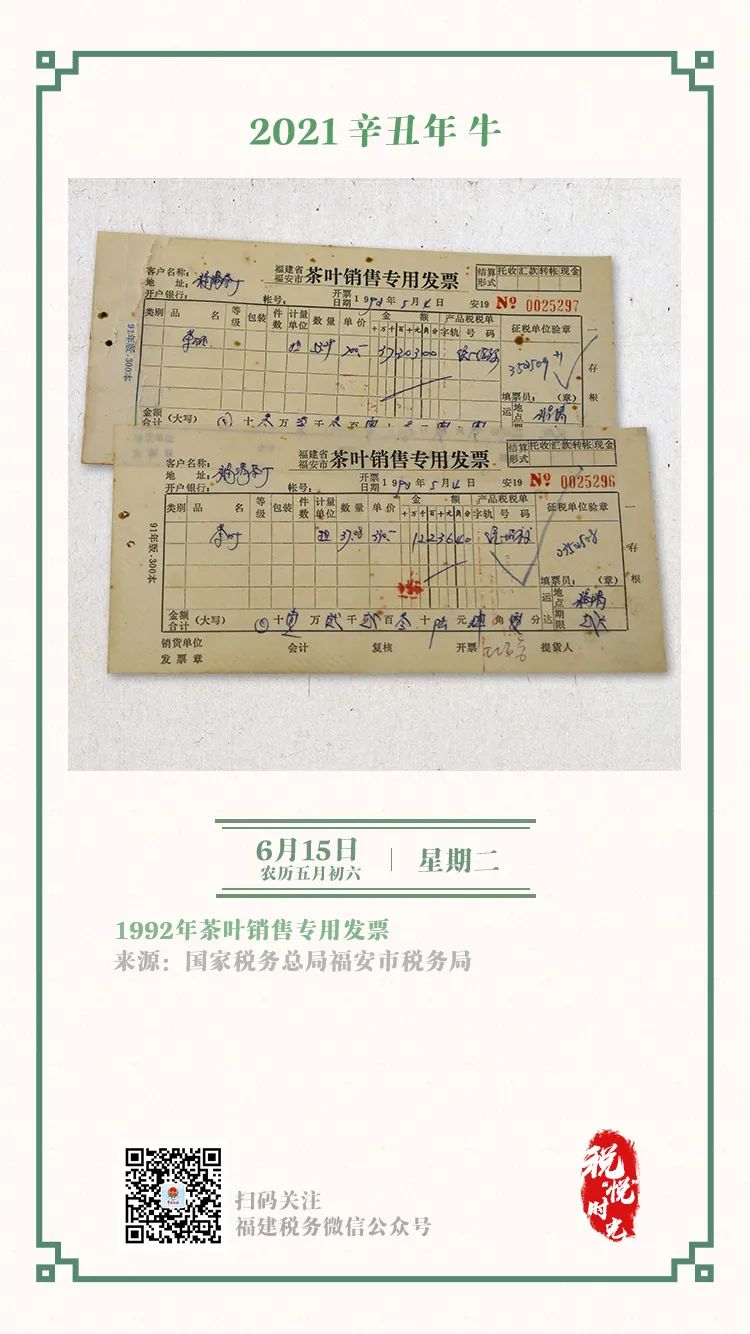 2021 辛丑年 牛
福建省
福安市
茶叶销售专用发票
客户名称：
地 址：
开户银行：
帐号：
开票
日期
19
年5月4日
安19 № 0025297
结算
形式
托收 汇款 转帐 现金
类别 品 名 等级 包装 件数 计量单位 数量 单价 金 额 产品税税单 征税单位验章
十万千百十元角分 字轨 号码
91年版.300本
一
存
根
填票员： （章）
运
地
点
金额
合计
（大写）
福建省
福安市
茶叶销售专用发票
客户名称：
地 址：
开户银行：
帐号：
开票
日期
19
年5月4日
安19 № 0025296
结算
形式
托收 汇款 转帐 现金
类别 品 名 等级 包装 件数 计量单位 数量 单价 金 额 产品税税单 征税单位验章
十万千百十元角分 字轨 号码
91年版.300本
1223640
一
存
根
填票员： （章）
运
达
地
点
期
限
金额
合计
（大写） 十 万 千 百 十 元 角 分
销货单位
发票章
会计 复核 开票 提货人
6月15日
农历五月初六
星期二
1992年茶叶销售专用发票
来源：国家税务总局福安市税务局
扫码关注
福建税务微信公众号
税
“悦”
时
光